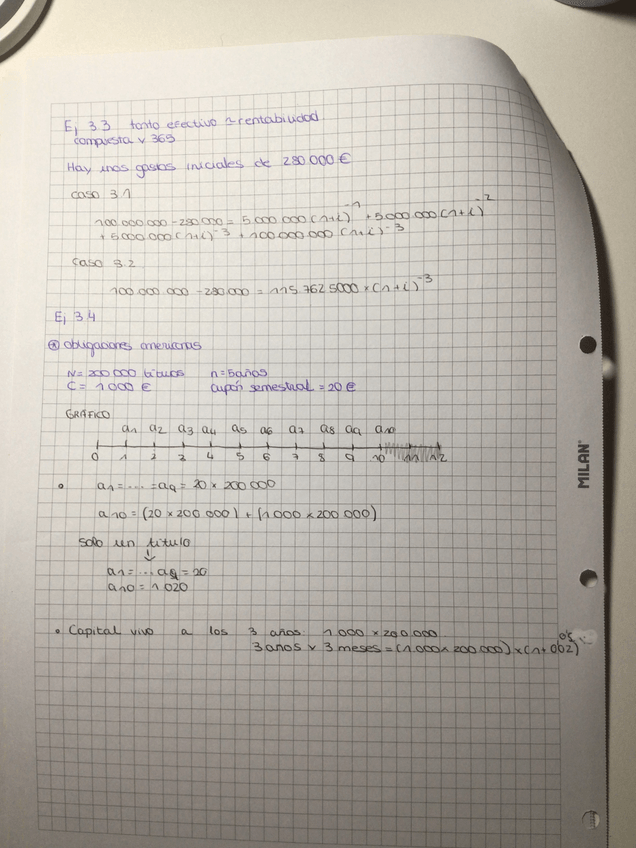 Ej 3.3 tanto efectivo ≃ rentabilidad
compuesta y 365
Hay unos gastos iniciales de 280.000 €
caso 3.1
100.000.000 - 280.000 = 5.000.000 (1+i)⁻¹ + 5.000.000 (1+i)⁻²
+ 5.000.000 (1+i)⁻³ + 100.000.000 (1+i)⁻³
caso 3.2
100.000.000 - 280.000 = 115.762.5000 × (1+i)⁻³
Ej 3.4
obligaciones americanas
N = 200.000 títulos n = 5 años
C = 1000 € cupón semestral = 20 €
GRÁFICO
a1 a2 a3 a4 a5 a6 a7 a8 a9 a10
0 1 2 3 4 5 6 7 8 9 10 11 12
• a1 = ... = a9 = 20 × 200.000
a10 = (20 × 200.000) + (1000 × 200.000)
Solo un título
↓
a1 = ... a9 = 20
a10 = 1020
• Capital vivo a los 3 años 1.000 × 200.000
3 años y 3 meses = (1.000 × 200.000) × (1+0'02)⁰'⁵
MILAN